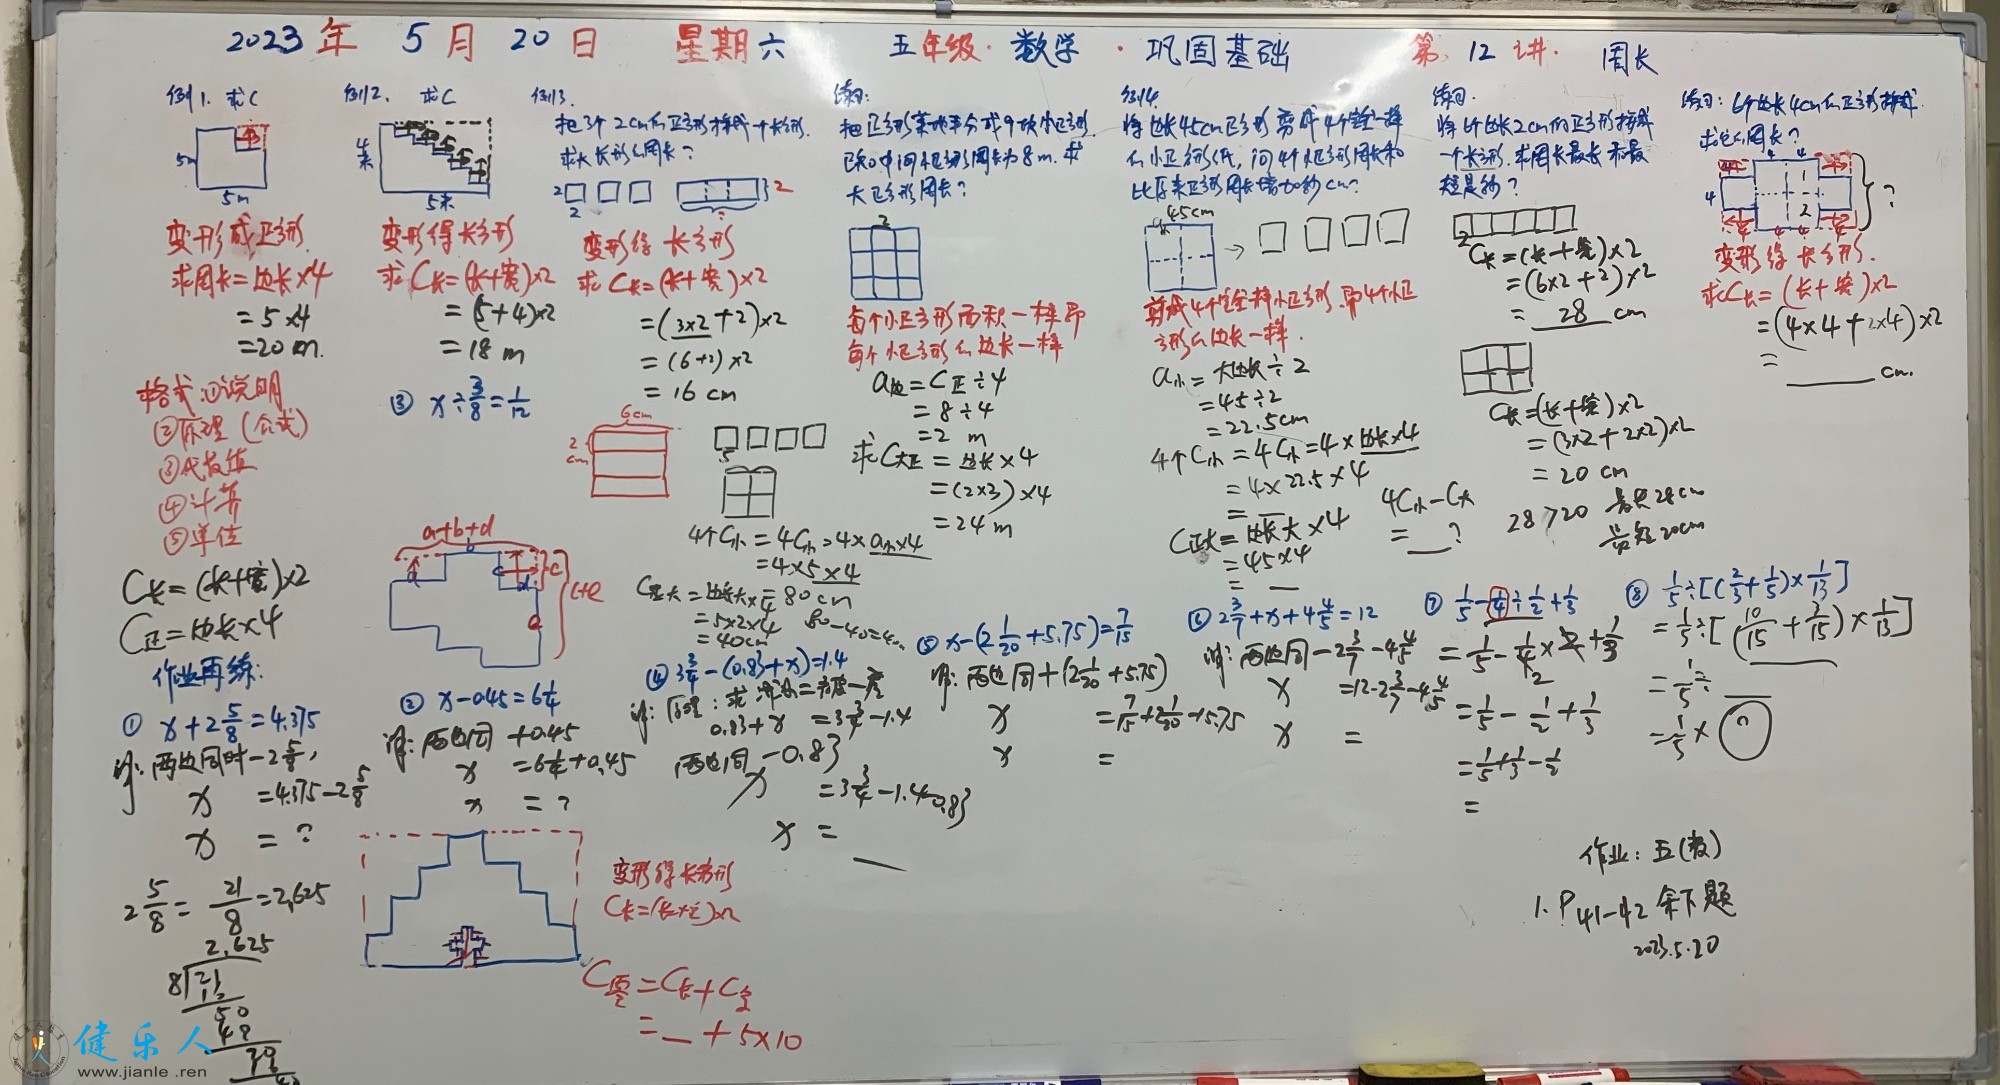 2023年 5月 20日 星期六 五年级·数学·巩固基础 第12讲· 周长
例1. 求C
5m
5m
变形成正方形.
求周长=边长×4
=5×4
=20m.
格式:①说明
②原理(公式)
③代数值
④计算
⑤单位
C长=(长+宽)×2
C正=边长×4
例2. 求C
4米
5米
变形得长方形
求C长=(长+宽)×2
=(5+4)×2
=18m
③ x÷3/8=1/12
例3.
把3个2cm的正方形拼成一个长方形.
求大长形的周长?
2
2
2
?
变形得长方形
求C长=(长+宽)×2
=(3×2+2)×2
=(6+2)×2
=16cm
6cm
2cm
5
4个C小=4C小=4×a小×4
=4×5×4
=80cm
C正大=边长大×4
=5×2×4
=40cm
80-40=40cm
练习:
把正方形菜地平分成9块小正方形.
已知中间小正方形周长为8m.求
大正方形周长?
2
每个小正方形面积一样即
每个小正方形的边长一样
a边=C正÷4
=8÷4
=2m
求C大正=边长×4
=(2×3)×4
=24m
例4.
将边长45cm正方形剪成4个完全一样
的小正方形纸,问4个小正方形周长和
比原来正方形周长增加多少cm?
45cm
剪成4个完全一样小正方形,即4个小正
方形的边长一样.
a小=大边长÷2
=45÷2
=22.5cm
4个C小=4C小=4×边长×4
=4×22.5×4
=
C正大=边长大×4
=45×4
=
4C小-C大
=__?
练习.
将6个边长2cm的正方形拼成
一个长方形.求周长最长和最
短是多少?
2
C长=(长+宽)×2
=(6×2+2)×2
=28cm
C长=(长+宽)×2
=(3×2+2×2)×2
=20cm
28>20 最长28cm
最短20cm
练习:6个边长4cm的正方形拼成.
求它的周长?
4
4
4
1
2
4
4
?
变形得长方形.
求C长=(长+宽)×2
=(4×4+2×4)×2
=____cm.
a+b+d
b
a
c
c
d
e
c+e
作业再练:
① x+2 5/8=4.375
解:两边同时-2 5/8,
x=4.375-2 5/8
x=?
2 5/8=21/8=2.625
2.625
8
21
50
② x-0.45=6 1/4
解:两边同+0.45
x=6 1/4+0.45
x=?
④ 3 3/4-(0.83+x)=1.4
解:原理:求减数=被减-差
0.83+x=3 3/4-1.4
两边同-0.83
x=3 3/4-1.4-0.83
x=__
⑤ x-(2 1/20+5.75)=7/15
解:两边同+(2 1/20+5.75)
x=7/15+2 1/20+5.75
x=
⑥ 2 3/7+x+4 4/5=12
解:两边同-2 3/7-4 4/5
x=12-2 3/7-4 4/5
x=
⑦ 1/5-1/4÷1/2+1/3
=1/5-1/4×2+1/3
=1/5-1/2+1/3
=1/5+1/3-1/2
=
⑧ 1/5÷[(2/3+1/5)×1/13]
=1/5÷[(10/15+3/15)×1/13]
=1/5÷__
=1/5×
变形得长方形
C长=(长+宽)×2
C原=C长+C
=__+5×10
作业:五(数)
1. P41-42 余下题
2023.5.20
健乐人
www.jianle .ren